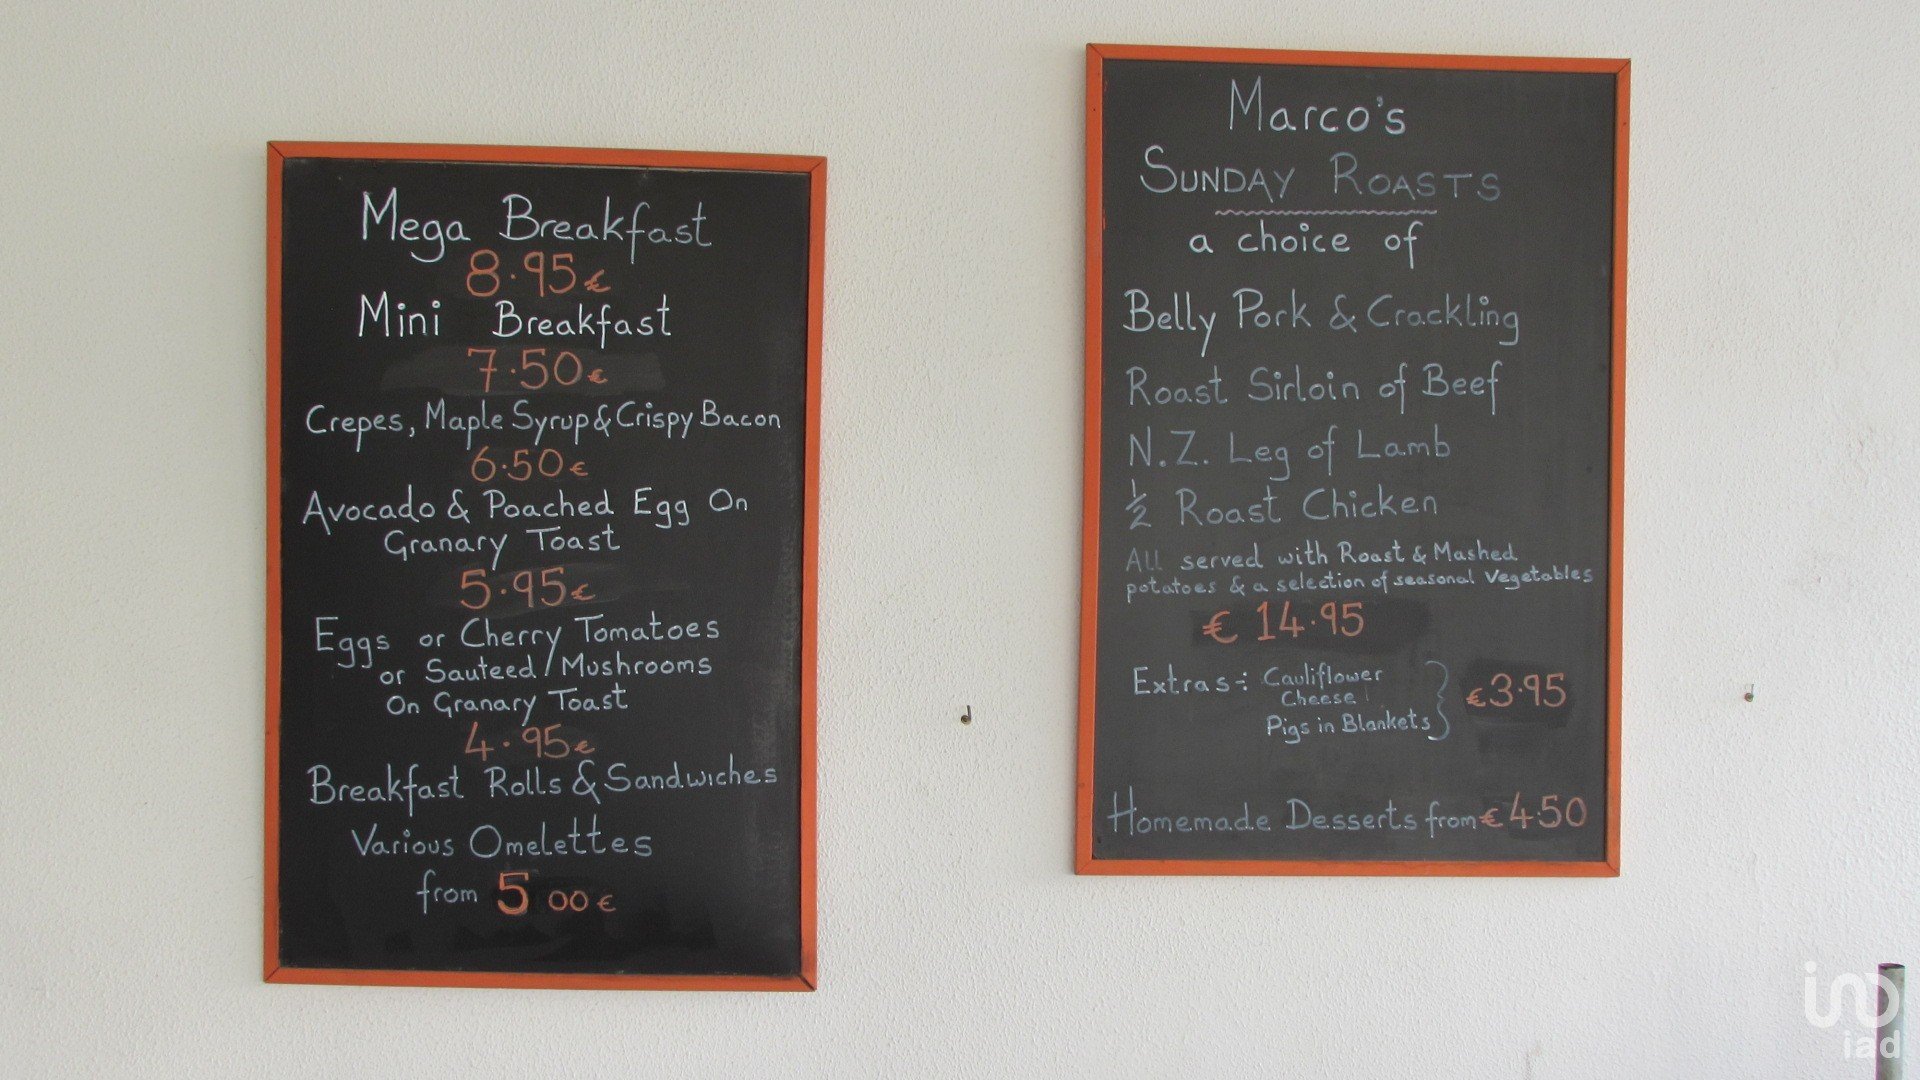 Mega Breakfast
8.95€
Mini Breakfast
7.50€
Crepes, Maple Syrup & Crispy Bacon
6.50€
Avocado & Poached Egg On
Granary Toast
5.95€
Eggs or Cherry Tomatoes
or Sauteed/Mushrooms
On Granary Toast
4.95€
Breakfast Rolls & Sandwiches
Various Omelettes
from 5 00€
Marco's
SUNDAY ROASTS
a choice of
Belly Pork & Crackling
Roast Sirloin of Beef
N.Z. Leg of Lamb
1/2 Roast Chicken
All served with Roast & Mashed
potatoes & a selection of seasonal vegetables
€ 14.95
Extras: Cauliflower
Cheese
Pigs in Blankets
€3.95
Homemade Desserts from €4.50
iad